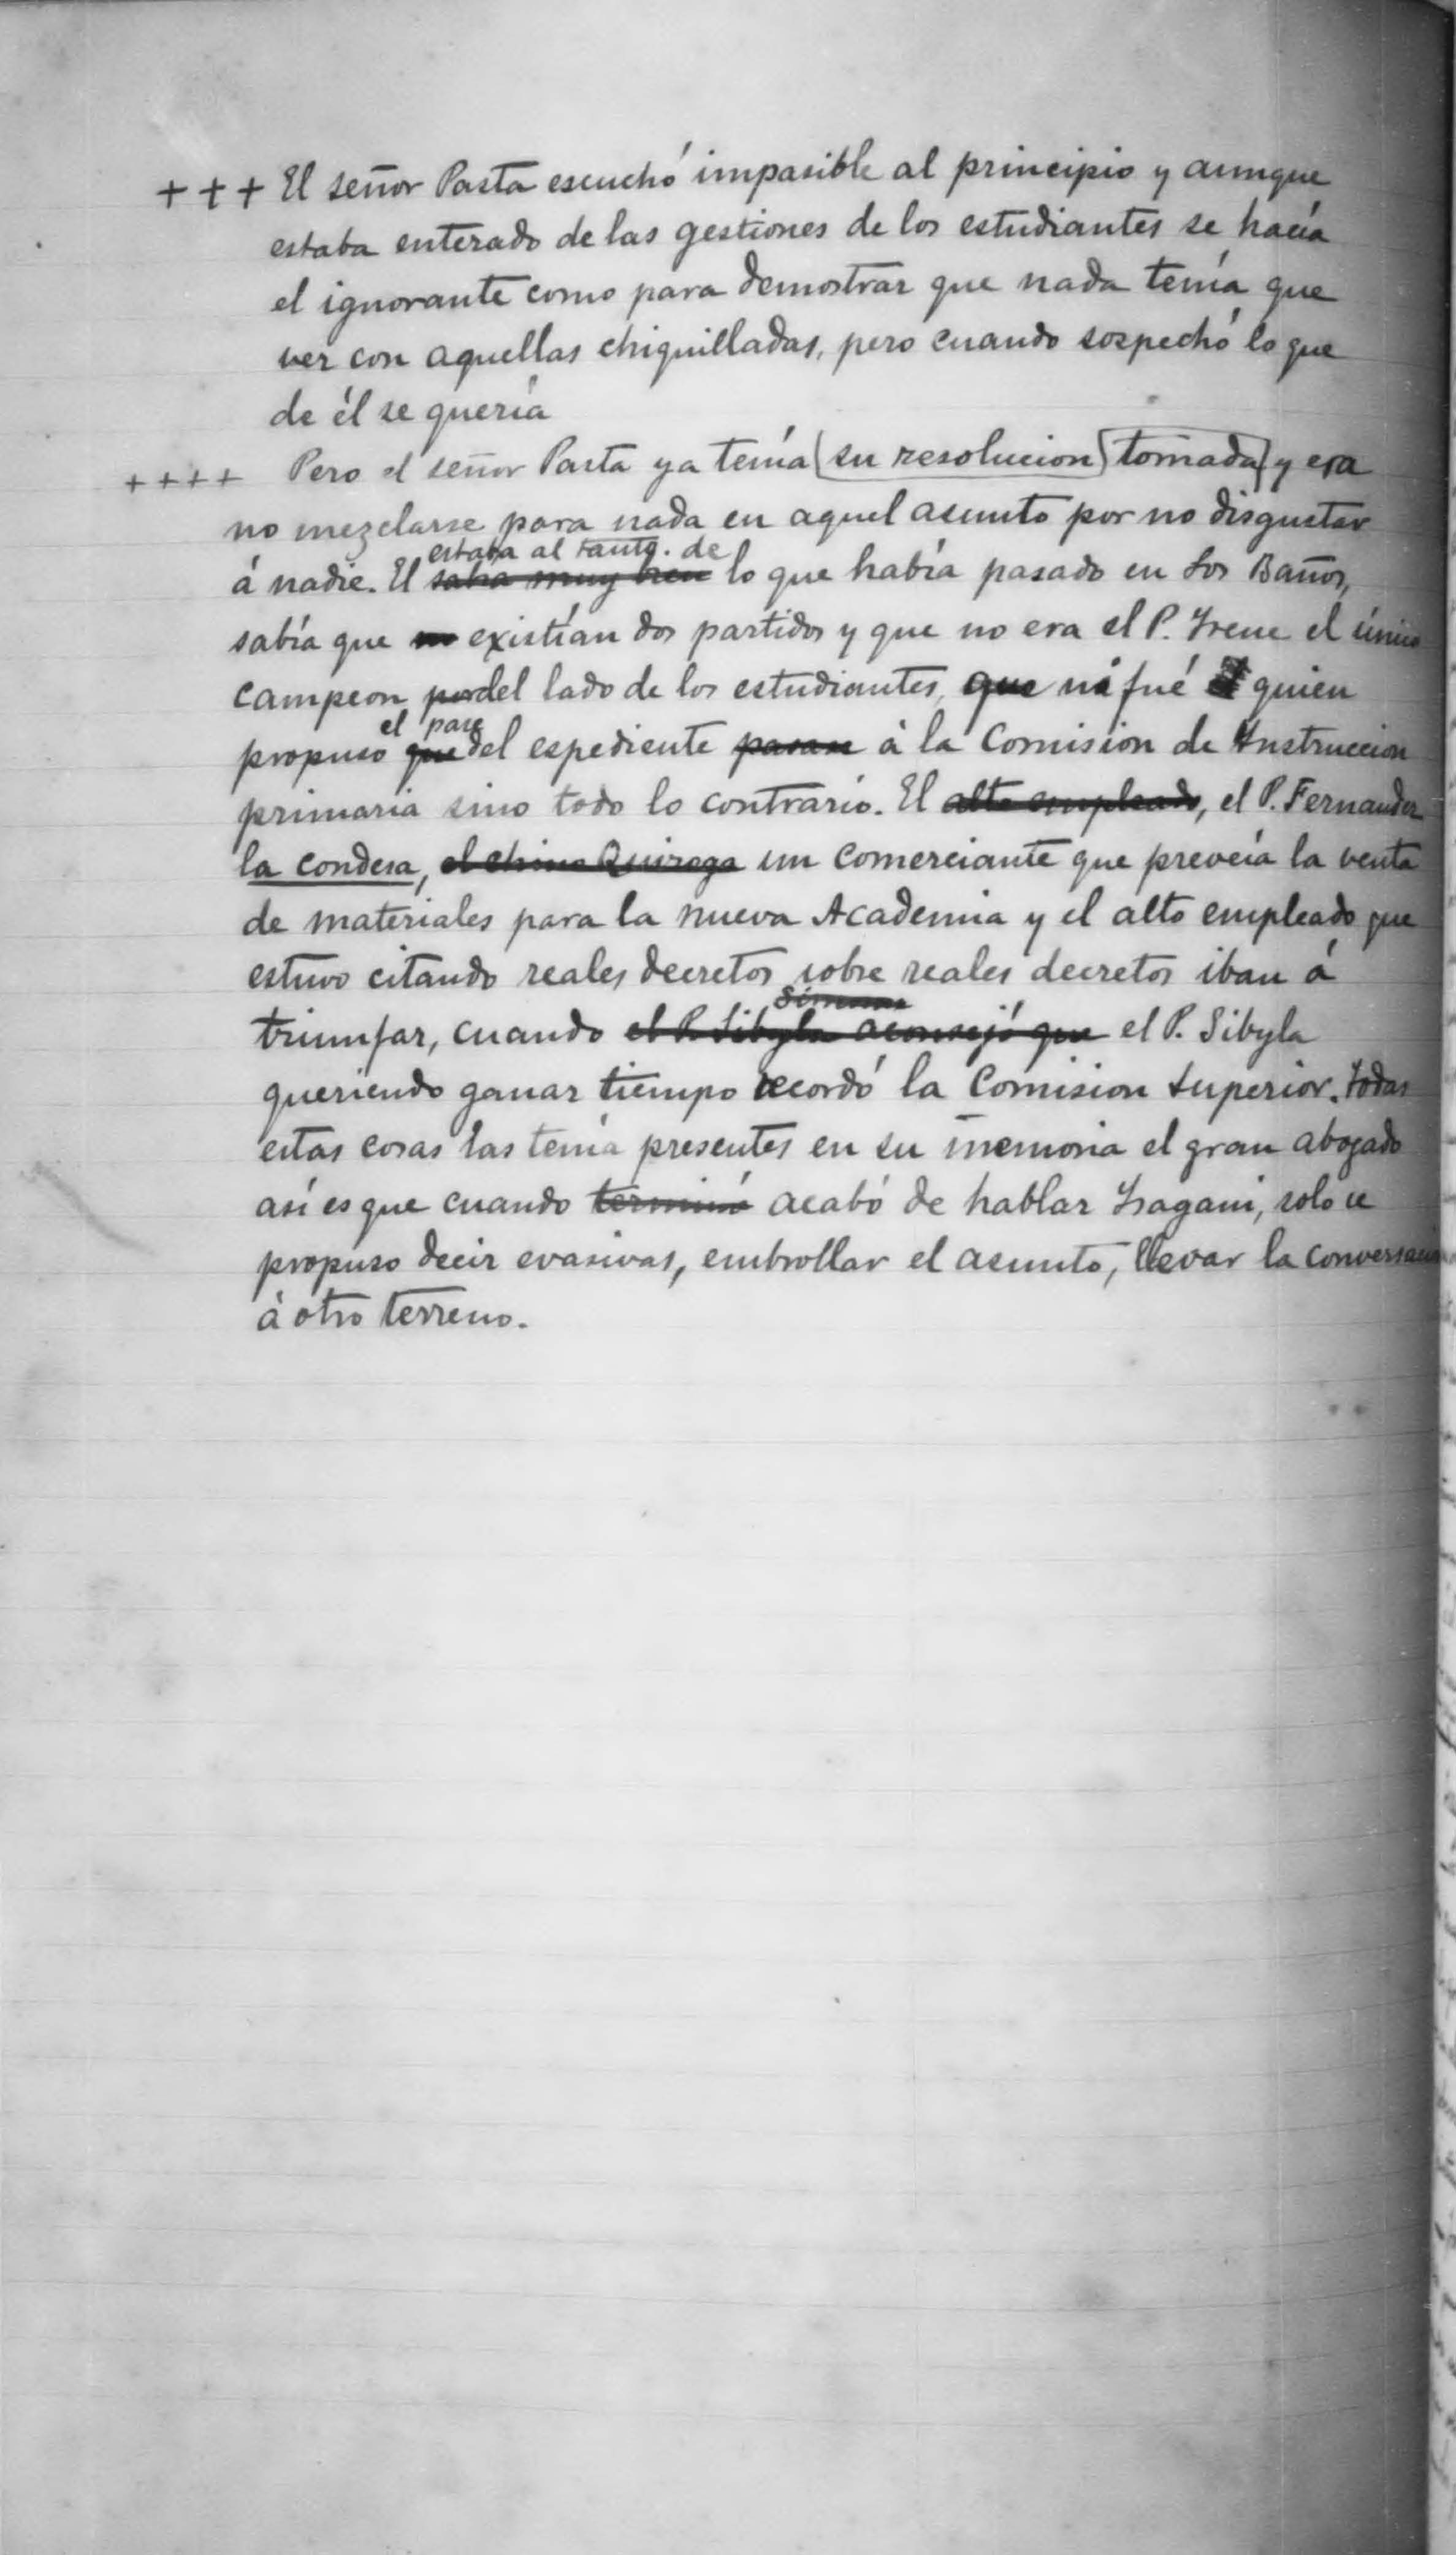 +++ El señor Pasta escuchó impasible al principio y aunque
estaba enterado de las gestiones de los estudiantes se hacía
el ignorante como para demostrar que nada tenía que
ver con aquellas chiquilladas, pero cuando sospechó lo que
de él se quería
++++ Pero el señor Pasta ya tenía su resolucion tomada y era
no mezclarse para nada en aquel asunto por no disgustar
estaba al tanto. de
á nadie. El sabia muy bien lo que había pasado en Los Baños,
sabía que no existían dos partidos y que no era el P. Irene el único
campeon por del lado de los estudiantes, que ni fué el quien
el pase
propuso que del espediente pasase á la Comision de Instruccion
primaria sino todo lo contrario. El alto empleado, el P. Fernandez
la condesa, el chino Quiroga un comerciante que preveía la venta
de materiales para la nueva Academia y el alto empleado que
estuvo citando reales decretos sobre reales decretos iban á
triunfar, cuando el P. Sibyla aconsejó que el P. Sibyla
queriendo ganar tiempo recordó la Comision Superior. Todas
estas cosas las tenía presentes en su memoria el gran abogado
así es que cuando terminó acabó de hablar Isagani, solo se
propuso decir evasivas, embrollar el asunto, llevar la conversacion
á otro terreno.